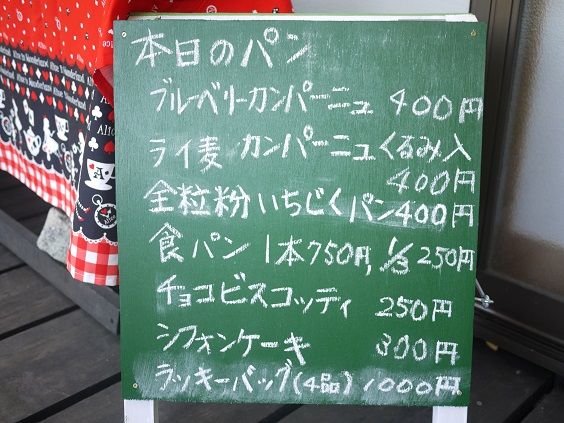 本日のパン
ブルーベリーカンパーニュ 400円
ライ麦 カンパーニュくるみ入
400円
全粒粉いちじくパン400円
食パン 1本750円, 1/3 250円
チョコビスコッティ 250円
シフォンケーキ 300円
ラッキーバッグ(4品) 1000円